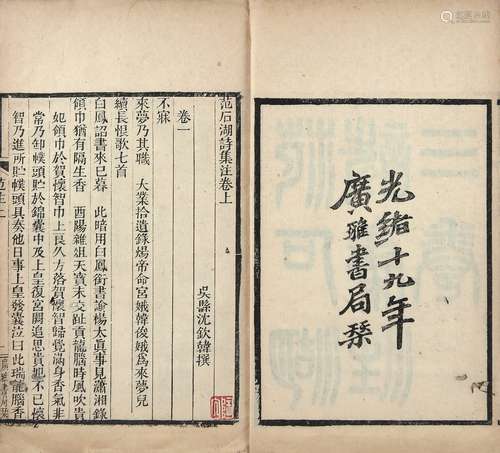 光緒十九年
廣雅書局栞
范石湖詩集注卷上
吳縣沈欽韓撰
卷一
不寐
來夢乃其職　大業拾遺錄煬帝命宮娥韓俊娥爲來夢兒
續長恨歌七首
白鳳詔書來已暮　此暗用白鳳銜書諭楊太眞事見瀟湘錄
領巾猶有隔生香　酉陽雜俎天寶末交趾貢龍腦時風吹貴
妃領巾於賀懷智巾上良久方落賀懷智歸覺滿身香氣非
常乃卸幞頭貯於錦囊中及上皇復宮闕追思貴妃不已懷
智乃進所貯幞頭具奏他日事上皇發囊泣曰此瑞龍腦香